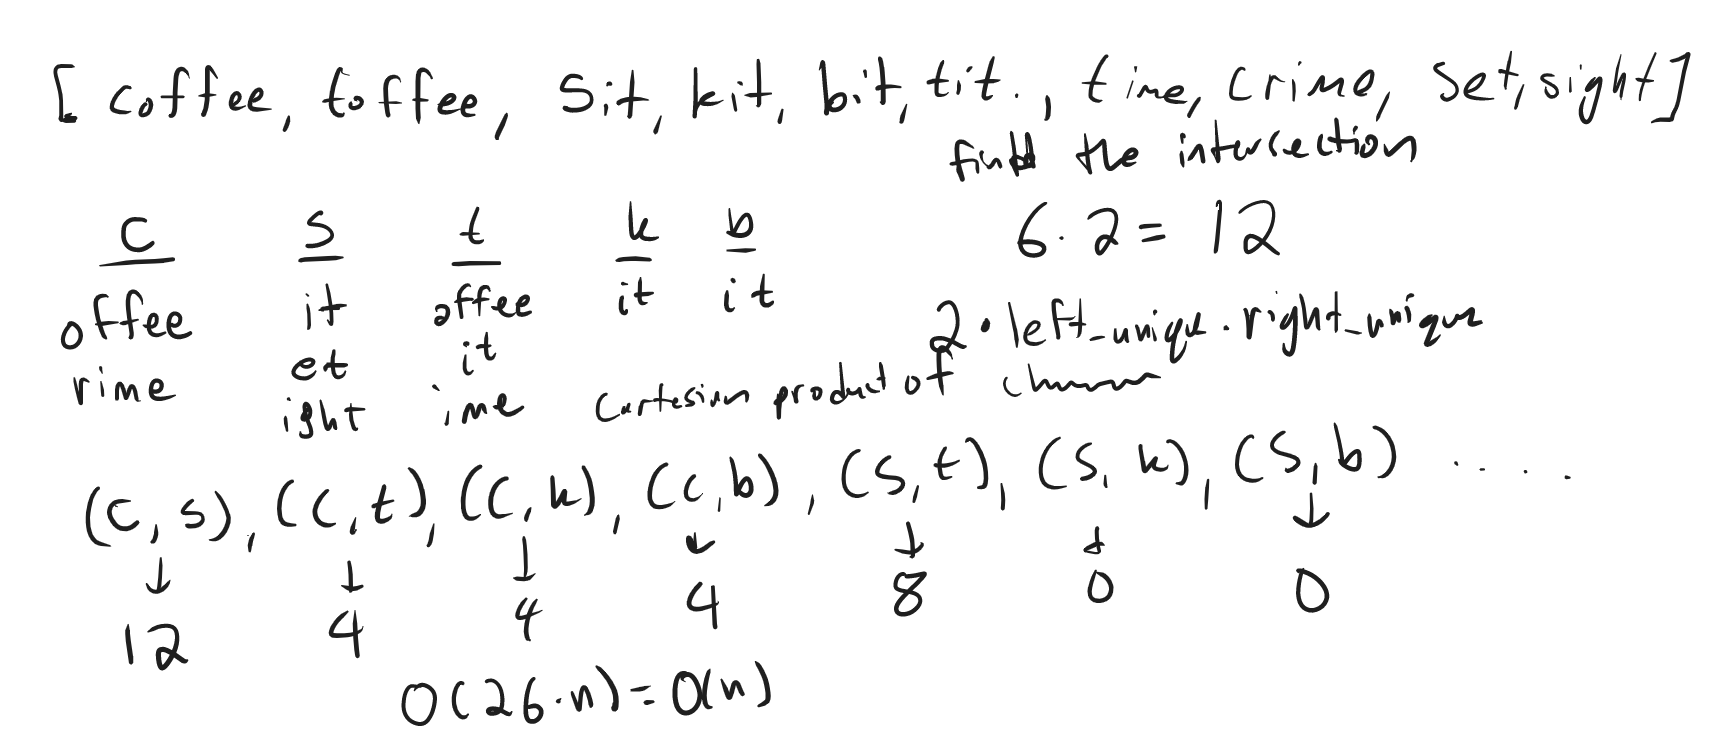 [coffee, toffee, sit, kit, bit, tit., time, crime, set, sight]
find the intersection
c s t k b
offee it offee it it
rime et it
ight ime
6 · 2 = 12
2 · left_unique · right_unique
Cartesian product of
(c, s), (c, t), (c, k), (c, b), (s, t), (s, k), (s, b) .....
↓ ↓ ↓ ↓ ↓ ↓ ↓
12 4 4 4 8 0 0
O(26·n) = O(n)